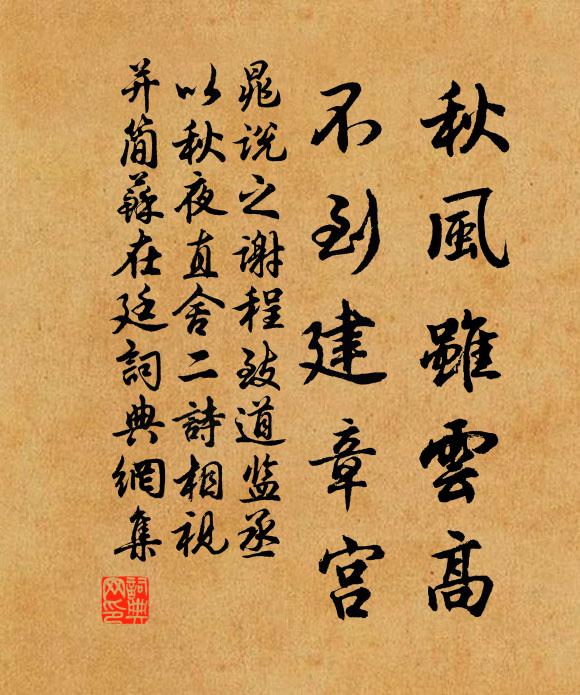 秋風雖雲高
不到建章宮
晁說之謝程致道監丞
以秋夜直舍二詩相視
并簡蘇在廷詞典網集
詞典
网印